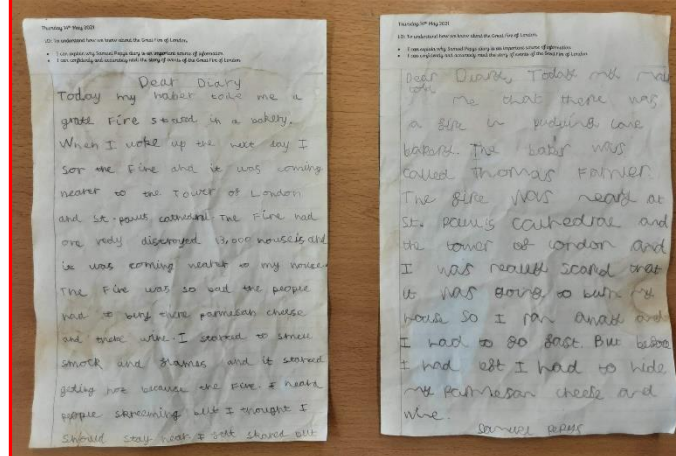 Thursday 14th May 2021
LO: To understand how we know about the Great Fire of London.
I can explain why Samuel Pepys diary is an important source of information
I can confidently and accurately retell the story of events of the Great Fire of London
Dear Diary
Today my told me a
grate Fire stared in a bakery.
When I woke up the next day I
sor the Fire and it was coming
nearer to the Tower of London
and St. pauls cathedral. The Fire had
one redy distroyed 13,000 houseis and
it was coming nearer to my house.
The Fire was so bad the people
had to bery there parmesan cheese
and there wine. I started to smell
smock and flames and it started
geting hot because the Fire. I heard
people skreeming but I thought I
should stay near. I felt but
Thursday 14th May 2021
LO: To understand how we know about the Great Fire of London.
I can explain why Samuel Pepys diary is an important source of information
I can confidently and accurately retell the story of events of the Great Fire of London
Dear Diary, Today my
told me that there was
a fire in pudying lane
bakery. The baker was
called Thomas
The fire was nearly at
St. paul's cathedral and
the tower of london and
I was really scard that
it was going to burn my
house so I ran away and
I had to go fast. But before
I had left I had to hide
my Parmesan cheese and
wine.
Samuel pepys